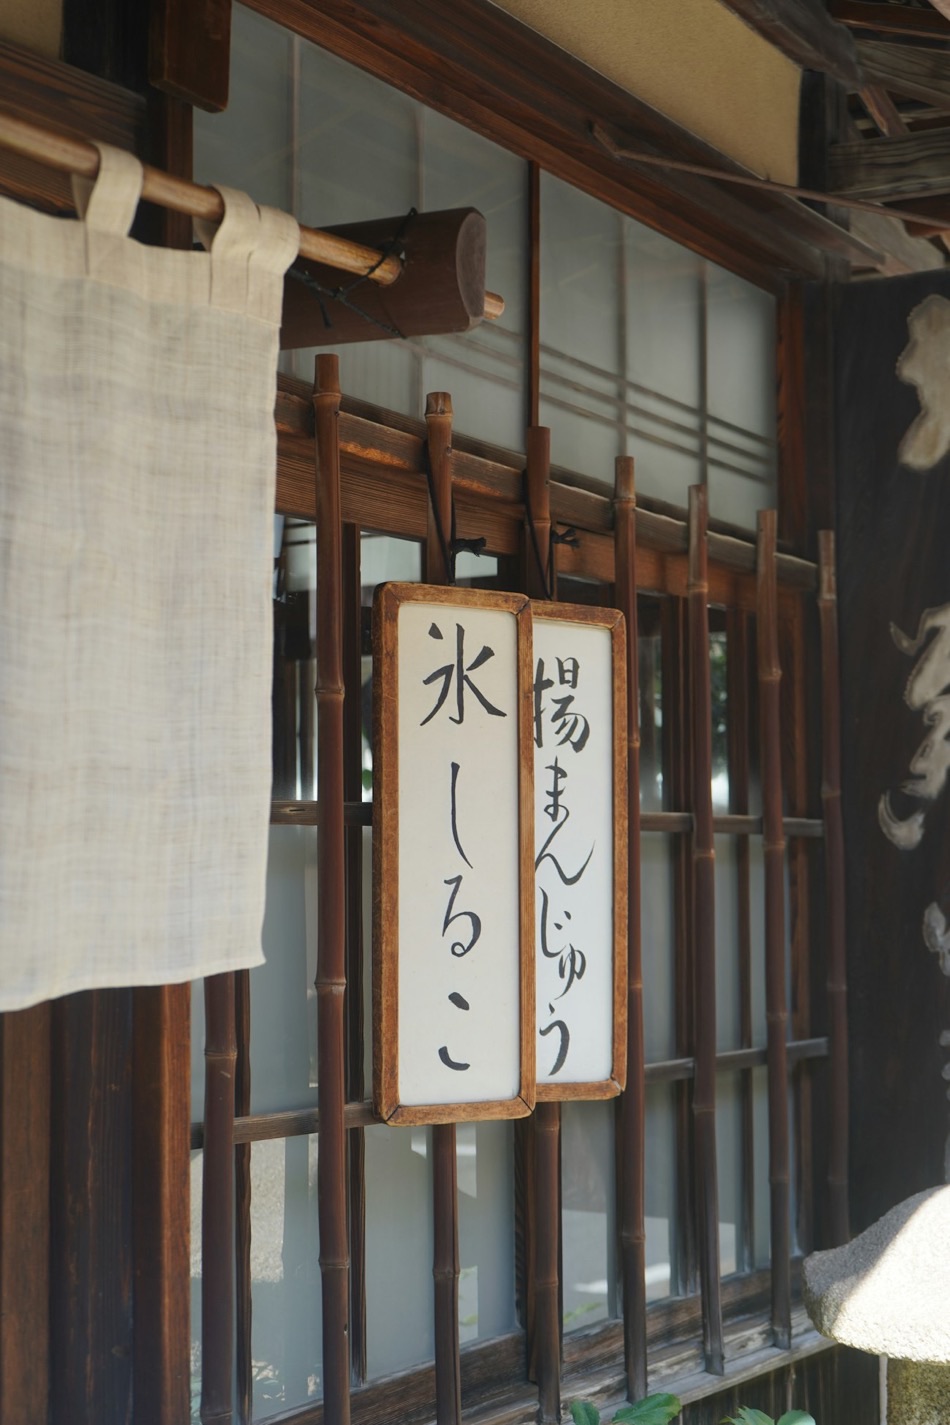 氷しるこ
揚まんじゅう